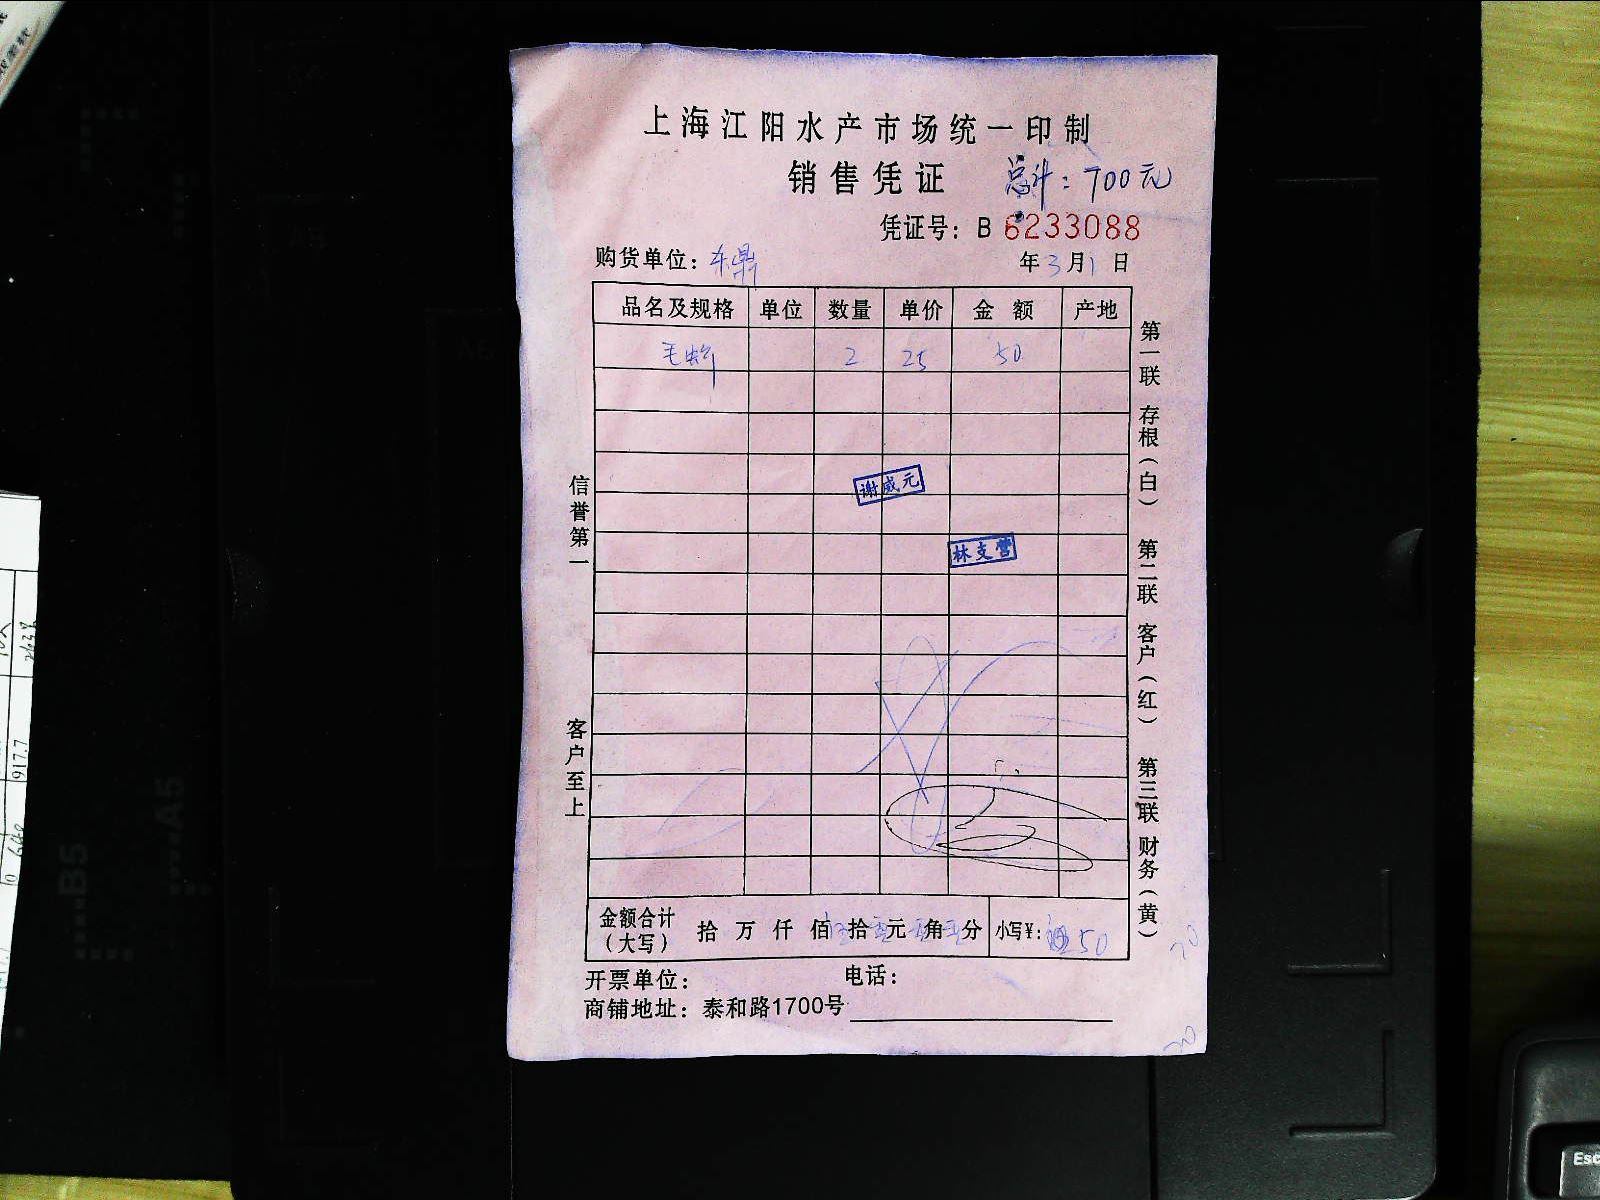 上海江阳水产市场统一印制
销售凭证 总计：700元
凭证号：B 6233088
购货单位：东鼎 年3月1日
品名及规格 单位 数量 单价 金额 产地
毛蚶 2 25 50
谢威元
林支营
信誉第一
客户至上
第一联 存根（白） 第二联 客户（红） 第三联 财务（黄）
金额合计（大写） 拾 万 仟 佰 拾 元 角 分 小写¥: 50
开票单位： 电话：
商铺地址：泰和路1700号
917.7
B5
A5
Esc